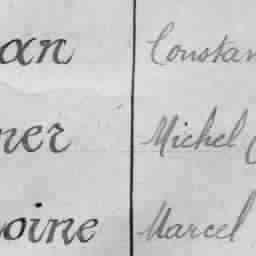 an Constan
ner Michel
oine Marcel